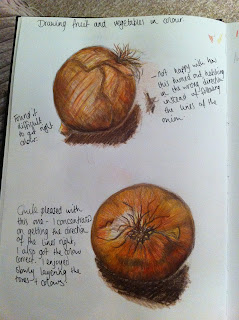 Drawing fruit and vegetables in colour
Found it
difficult
to get right
colour.
- not happy with how
this turned out. hatching
in the wrong direction
instead of following
the lines of the
onion.
Quite pleased with
this one - I concentrated
on getting the direction
of the lines right,
I also got the colour
correct. I enjoyed
slowly layering the
tones & colours!